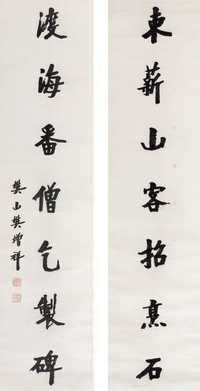 束薪山客招烹石
渡海番僧乞製碑
樊山樊增祥